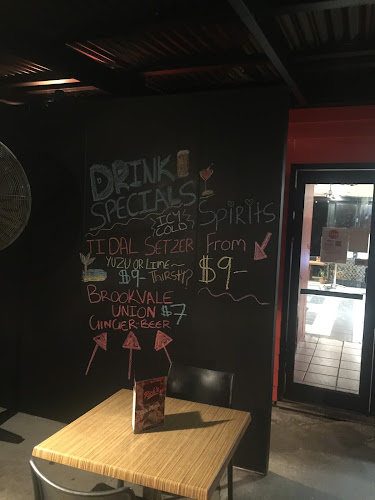 DRINK
SPECIALS
ICY
COLD!
TIDAL SETZER
YUZU OR LIME~
$9- THIRSTY?
BROOKVALE
UNION $7
GINGER-BEER
Spirits
From
$9-